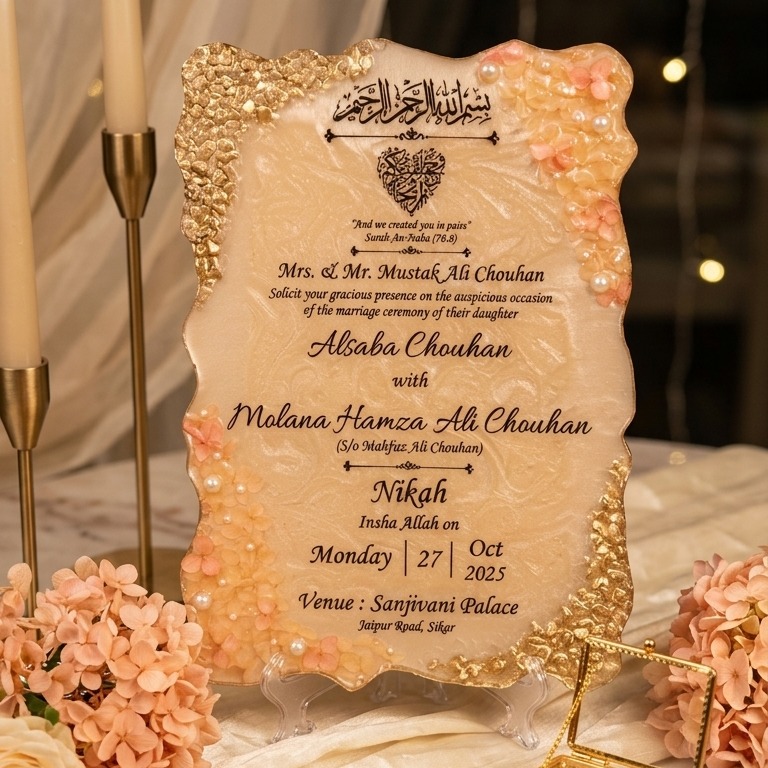 بسم الله الرحمن الرحيم
"And we created you in pairs"
Surah An-Naba (76.8)
Mrs. & Mr. Mustak Ali Chouhan
Solicit your gracious presence on the auspicious occasion
of the marriage ceremony of their daughter
Alsaba Chouhan
with
Molana Hamza Ali Chouhan
(S/o Mahfuz Ali Chouhan)
Nikah
Insha Allah on
Monday | 27 | Oct
2025
Venue : Sanjivani Palace
Jaipur Road, Sikar